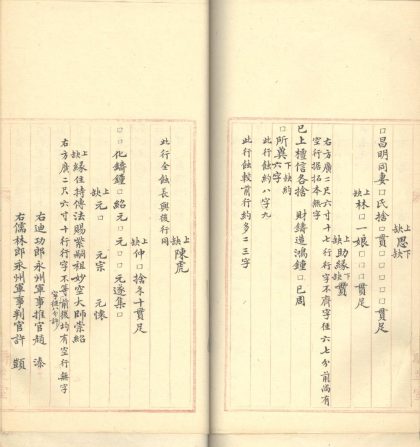 上缺恩下缺
□昌明同妻□氏捨□貫□□□□貫足
上缺林□一娘□□□□貫足
上缺助緣下缺貫
右方廣二尺六寸十七行行字不齊字徑六七分前尚有
空行据拓本無字
已上檀信各捨　財鑄造鴻鐘□已周
□所冀下缺約六字
此行蝕約八字九
此行蝕較前行約多二三字
此行全蝕長與後行同
上缺陳虎
上缺仲□捨冬十貫足
□□化鑄鐘□紹元□元□□元遂集□
上缺元□　元宗　元懷
上缺緣住持傳法賜紫嗣祖妙空大師崇紹
右方廣二尺六寸十行行字不等前後均有空行無字
字徑六分許
右迪功郎永州軍事推官趙　溱
右儒林郎永州軍事判官許　顗